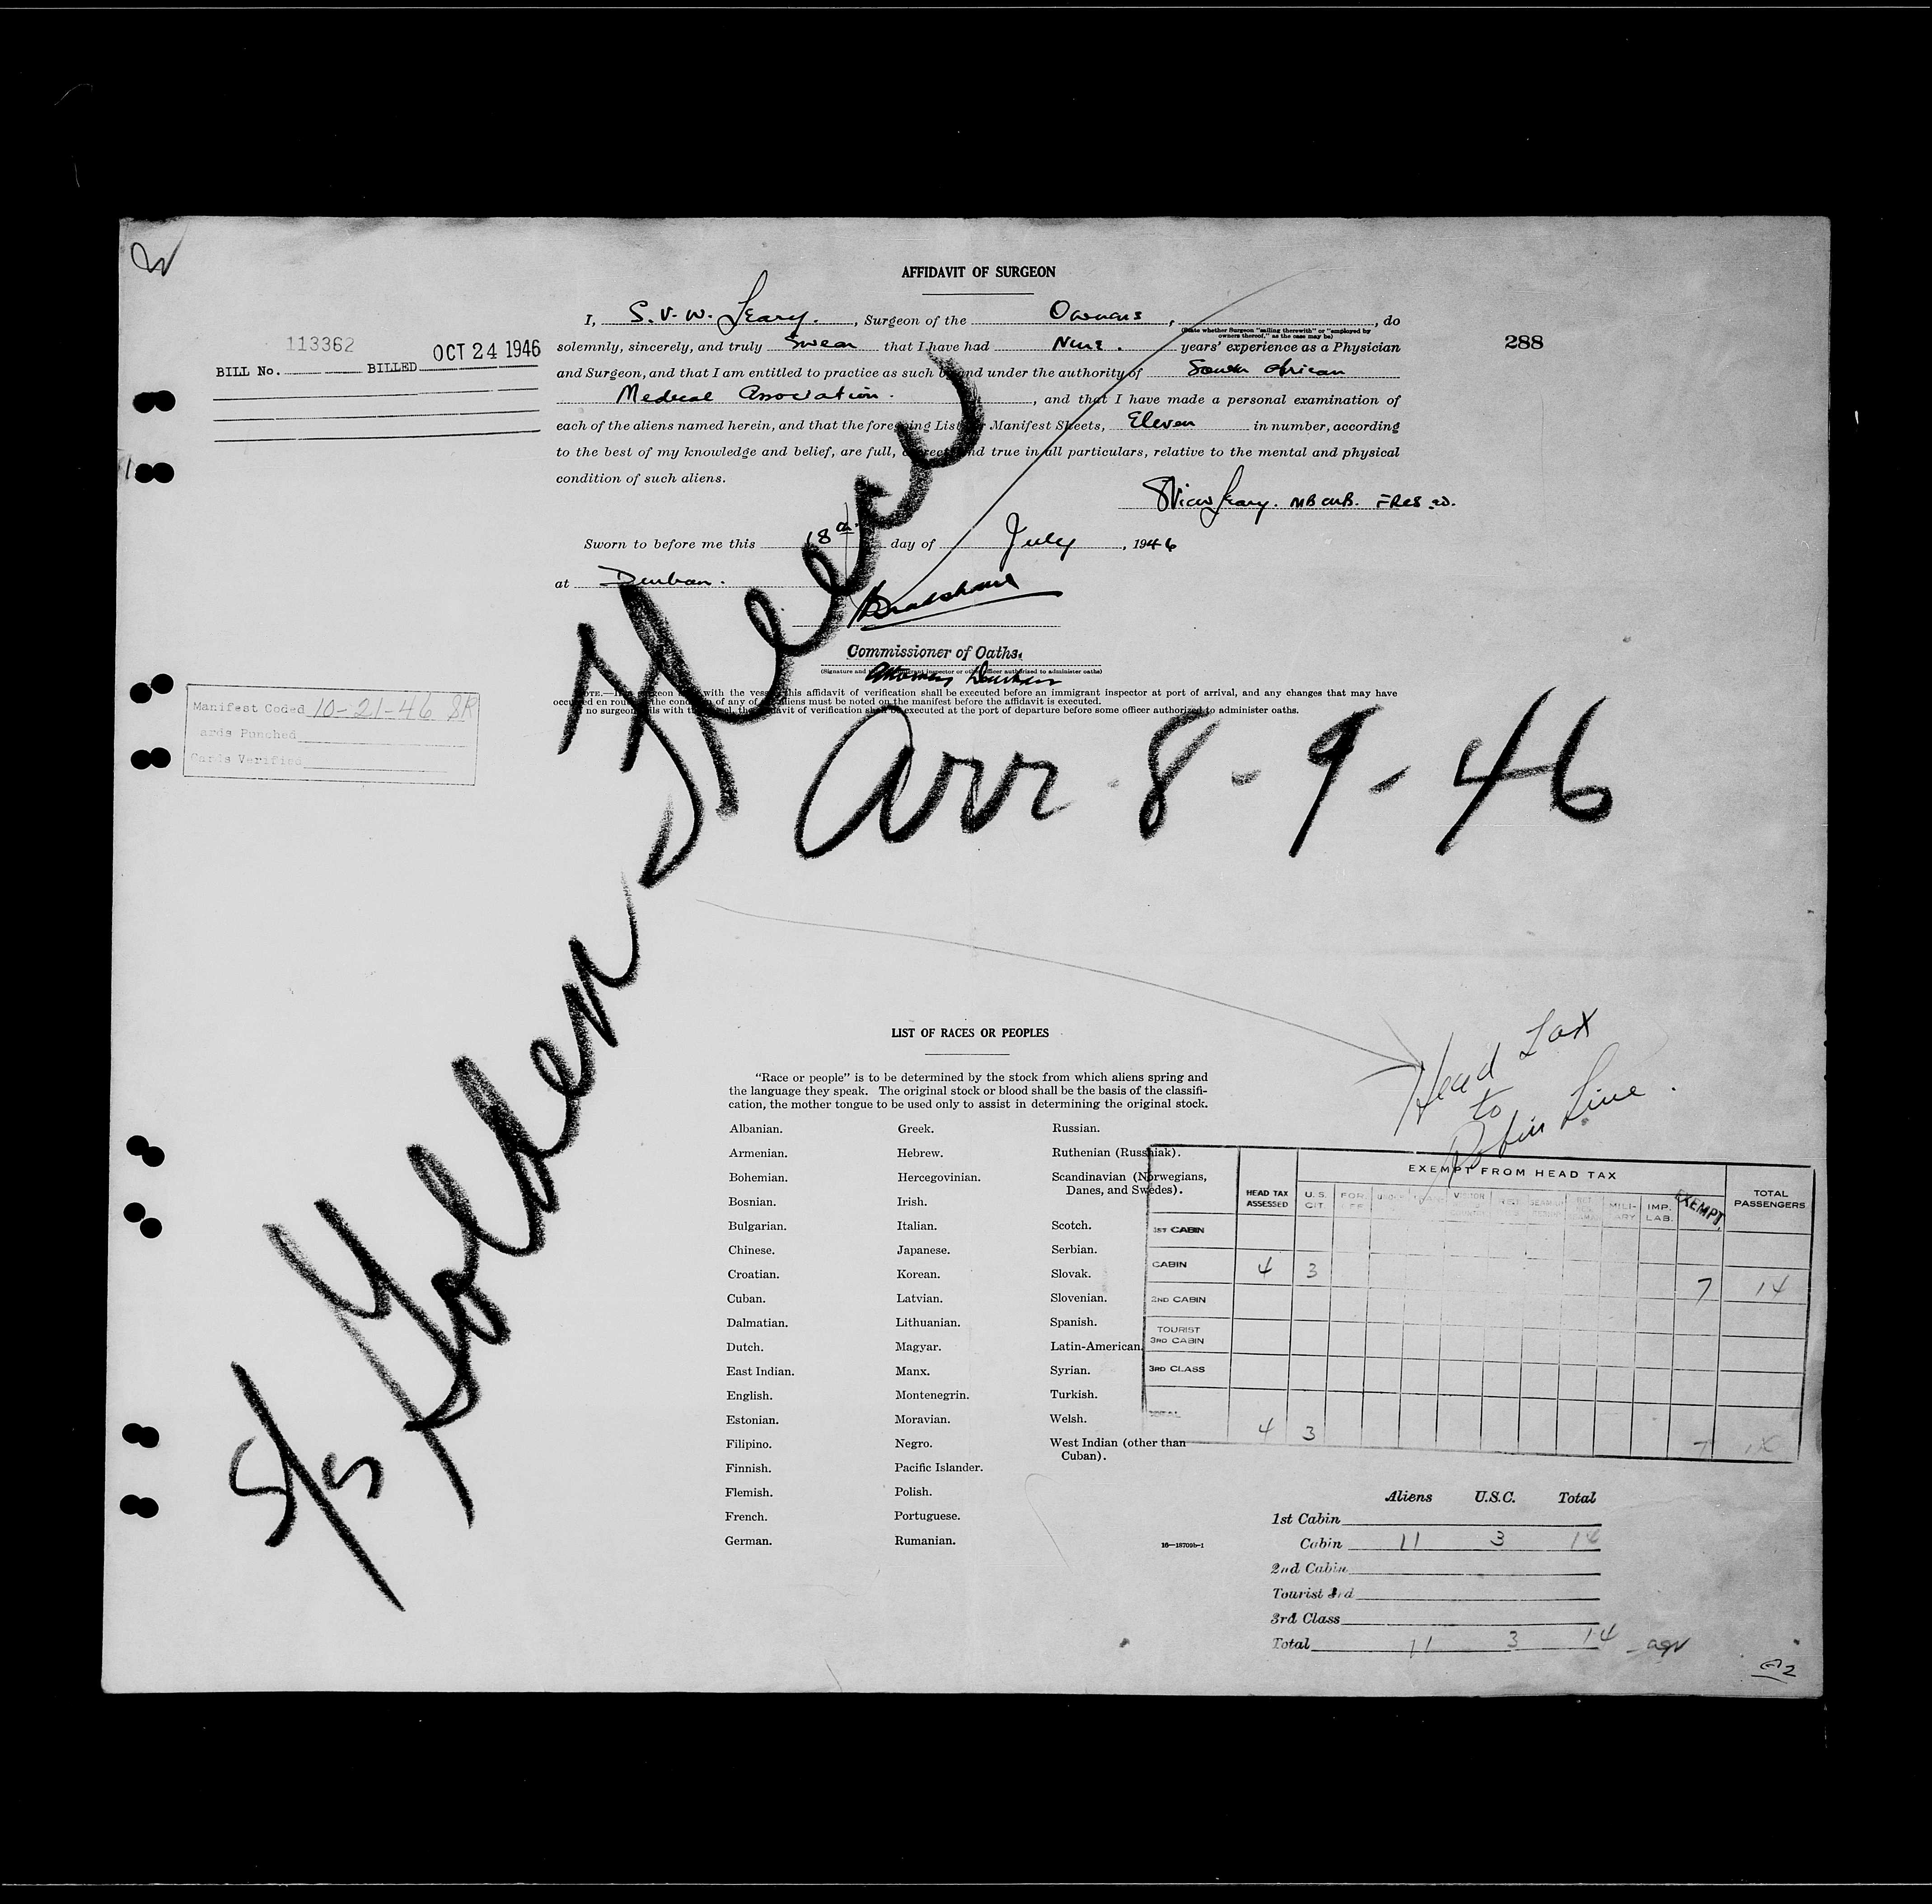 AFFIDAVIT OF SURGEON
I, S. V. W. Leary., Surgeon of the Owners, do
(State whether Surgeon "sailing therewith" or "employed by
owners thereof," as the case may be)
solemnly, sincerely, and truly Swear that I have had Nine. years' experience as a Physician
and Surgeon, and that I am entitled to practice as such by and under the authority of South African
Medical Association., and that I have made a personal examination of
each of the aliens named herein, and that the foregoing Lists or Manifest Sheets, Eleven in number, according
to the best of my knowledge and belief, are full, correct, and true in all particulars, relative to the mental and physical
condition of such aliens.
Leary. MB ChB.
Sworn to before me this 18th day of July, 1946
at Durban.
Bradshaw
Commissioner of Oaths.
(Signature and immigrant inspector or other officer authorized to administer oaths)
Attorney Durban
NOTE.—If surgeon sails with the vessel, this affidavit of verification shall be executed before an immigrant inspector at port of arrival, and any changes that may have
occurred en route in the condition of any of the aliens must be noted on the manifest before the affidavit is executed.
If no surgeon sails with the vessel, the affidavit of verification shall be executed at the port of departure before some officer authorized to administer oaths.
288
113362
BILL No. BILLED OCT 24 1946
Manifest Coded 10-21-46 SR
Cards Punched
Cards Verified
S/S Golden Fleece
Arr. 8-9-46
Head Tax
to
Robin Line.
LIST OF RACES OR PEOPLES
"Race or people" is to be determined by the stock from which aliens spring and
the language they speak. The original stock or blood shall be the basis of the classifi-
cation, the mother tongue to be used only to assist in determining the original stock.
Albanian.
Armenian.
Bohemian.
Bosnian.
Bulgarian.
Chinese.
Croatian.
Cuban.
Dalmatian.
Dutch.
East Indian.
English.
Estonian.
Filipino.
Finnish.
Flemish.
French.
German.
Greek.
Hebrew.
Hercegovinian.
Irish.
Italian.
Japanese.
Korean.
Latvian.
Lithuanian.
Magyar.
Manx.
Montenegrin.
Moravian.
Negro.
Pacific Islander.
Polish.
Portuguese.
Rumanian.
Russian.
Ruthenian (Russniak).
Scandinavian (Norwegians,
Danes, and Swedes).
Scotch.
Serbian.
Slovak.
Slovenian.
Spanish.
Latin-American.
Syrian.
Turkish.
Welsh.
West Indian (other than
Cuban).
16—18709b-1
EXEMPT FROM HEAD TAX
HEAD TAX ASSESSED U.S. CIT. VISITOR MILI-TARY IMP. LAB. EXEMPT TOTAL PASSENGERS
1ST CABIN
CABIN 4 3 7 14
2ND CABIN
TOURIST
3RD CABIN
3RD CLASS
TOTAL 4 3 7 14
Aliens U.S.C. Total
1st Cabin
Cabin 11 3 14
2nd Cabin
Tourist 3rd
3rd Class
Total 11 3 14